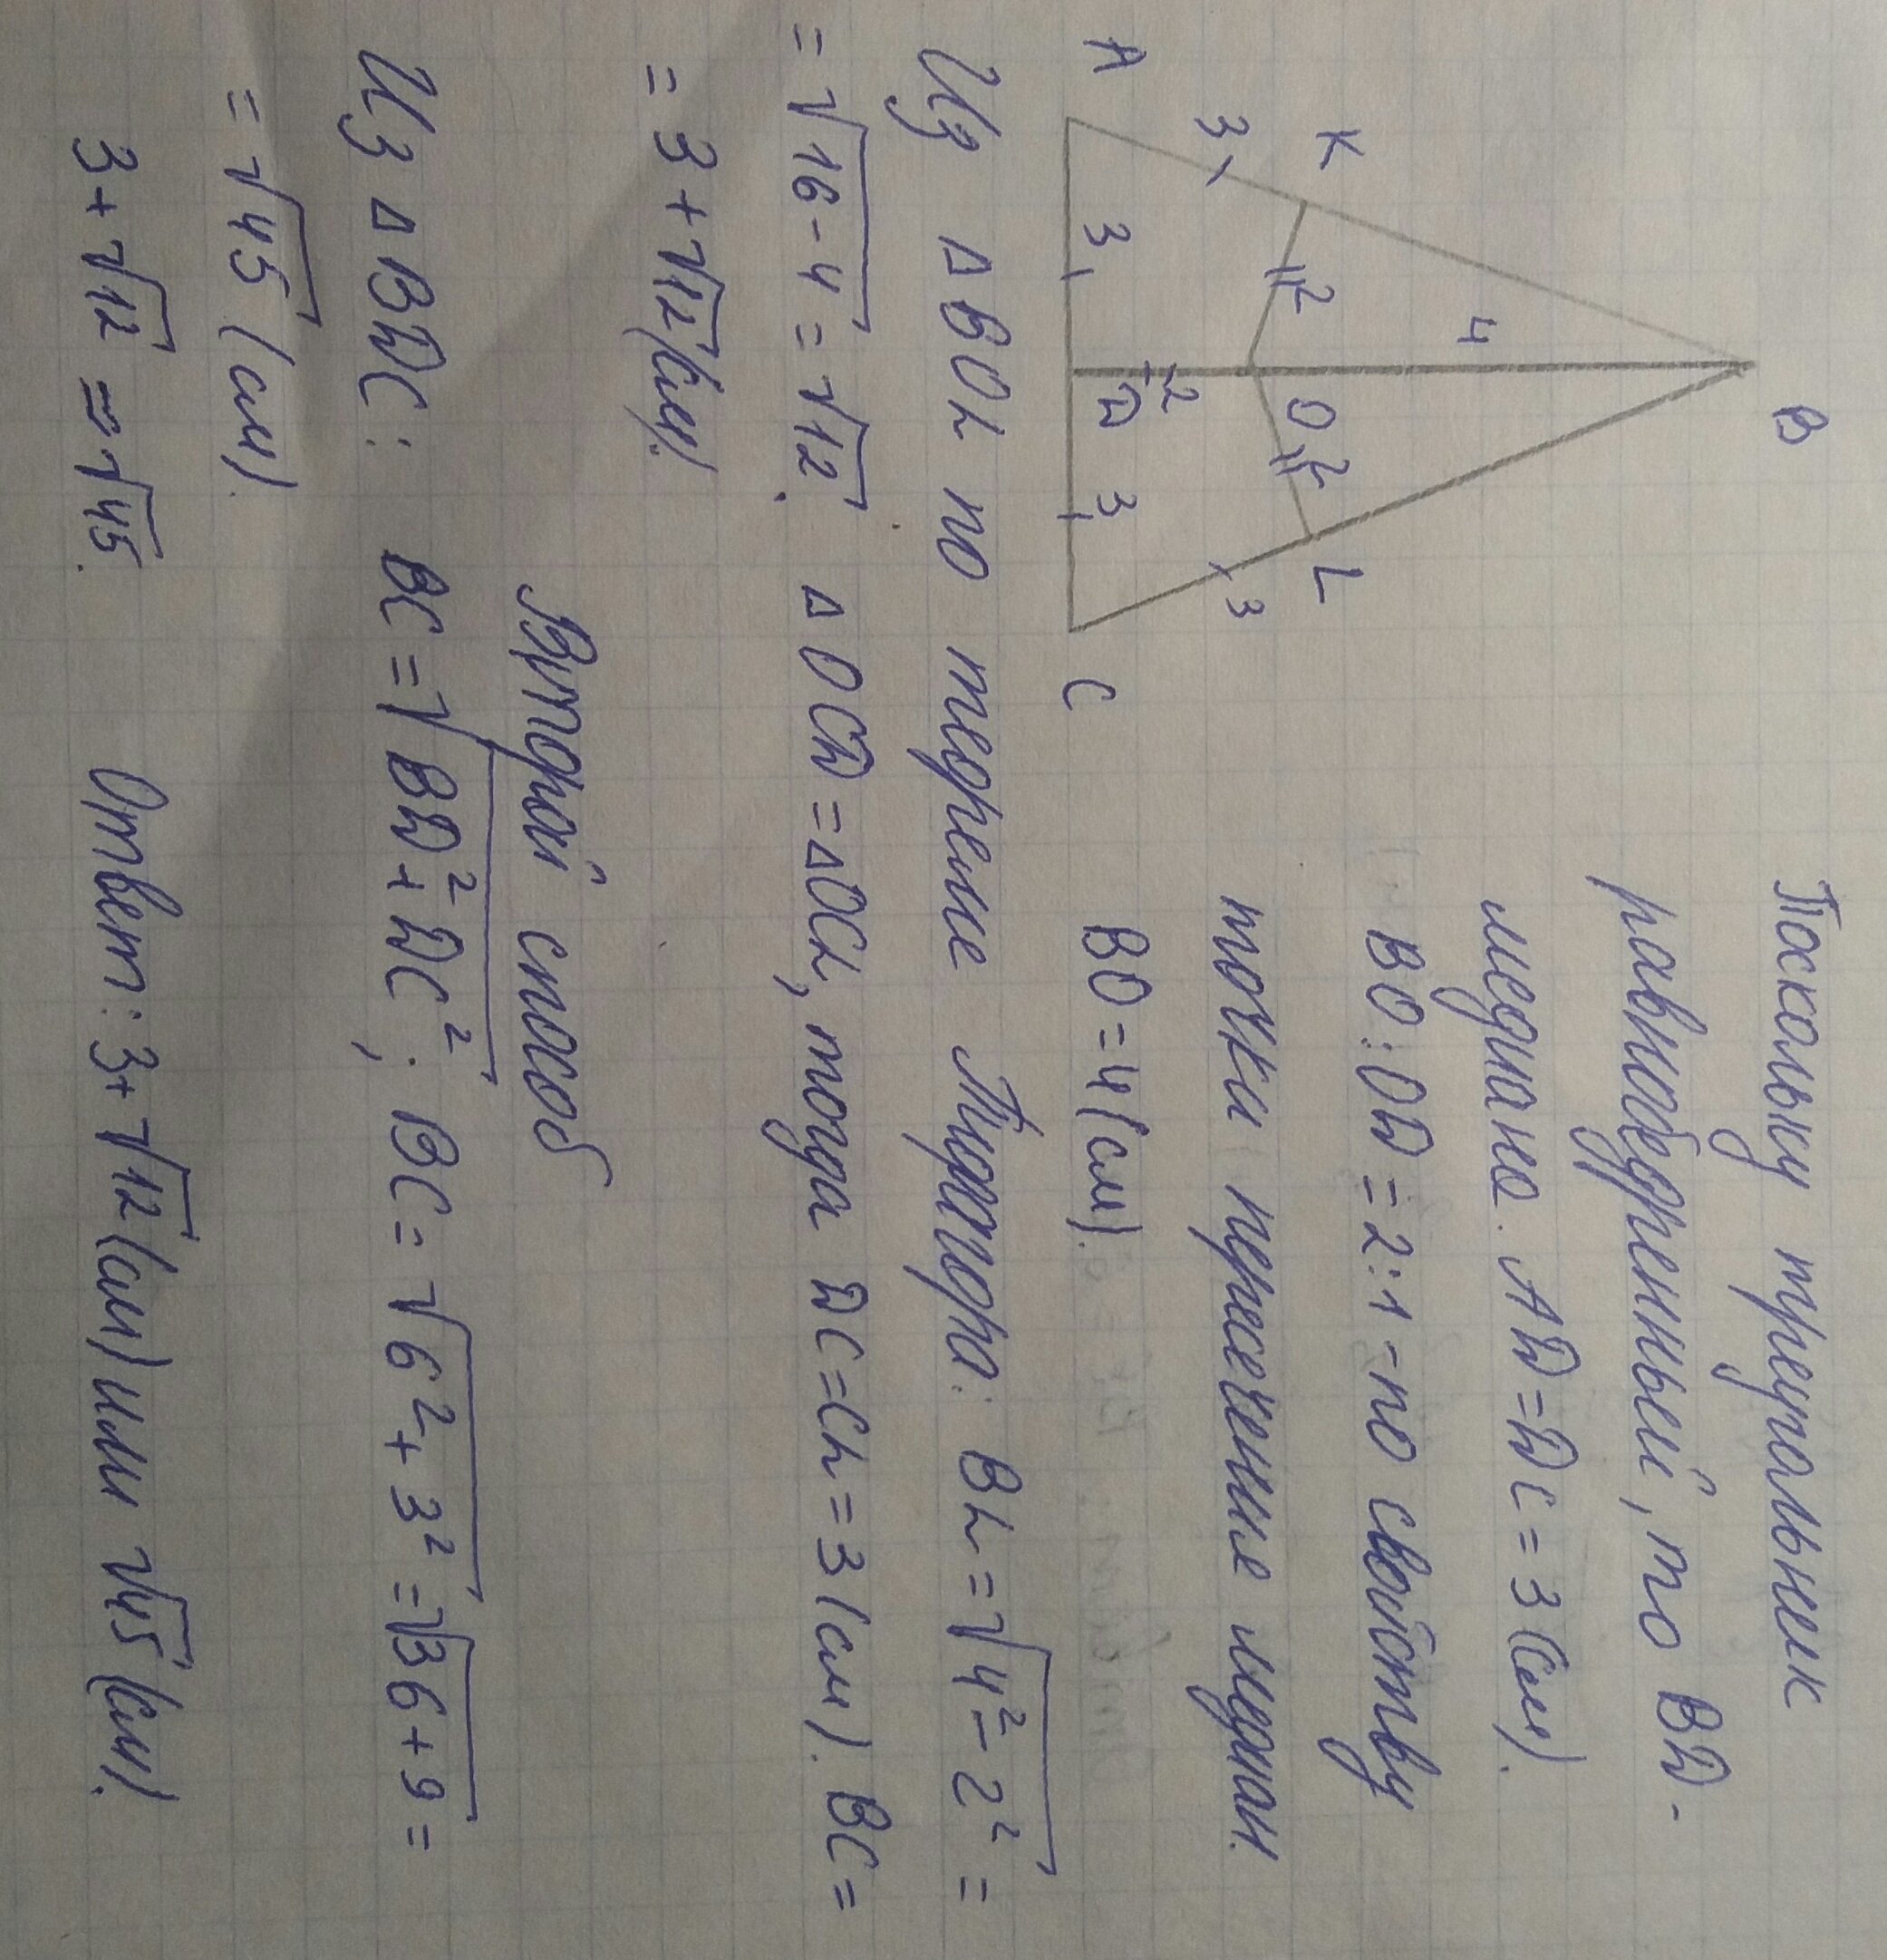 B
K
L
4
2
O
2
3
3
2
A
3
D
3
C
Поскольку треугольник
равнобедренный, то BD -
медиана. AD = DC = 3 (см).
BO : OD = 2 : 1 - по свойству
точки пересечение медиан.
BO = 4 (см).
Из △ BOL по теореме Пифагора: BL = √4² - 2² =
= √16 - 4 = √12. △ OCD = △OCL, тогда DC = CL = 3 (см). BC =
= 3 + √12 (см).
Второй способ
Из △ BDC: BC = √BD² + DC²; BC = √6² + 3² = √36 + 9 =
= √45 (см).
3 + √12 ≈ √45. Ответ: 3 + √12 (см) или √45 (см).